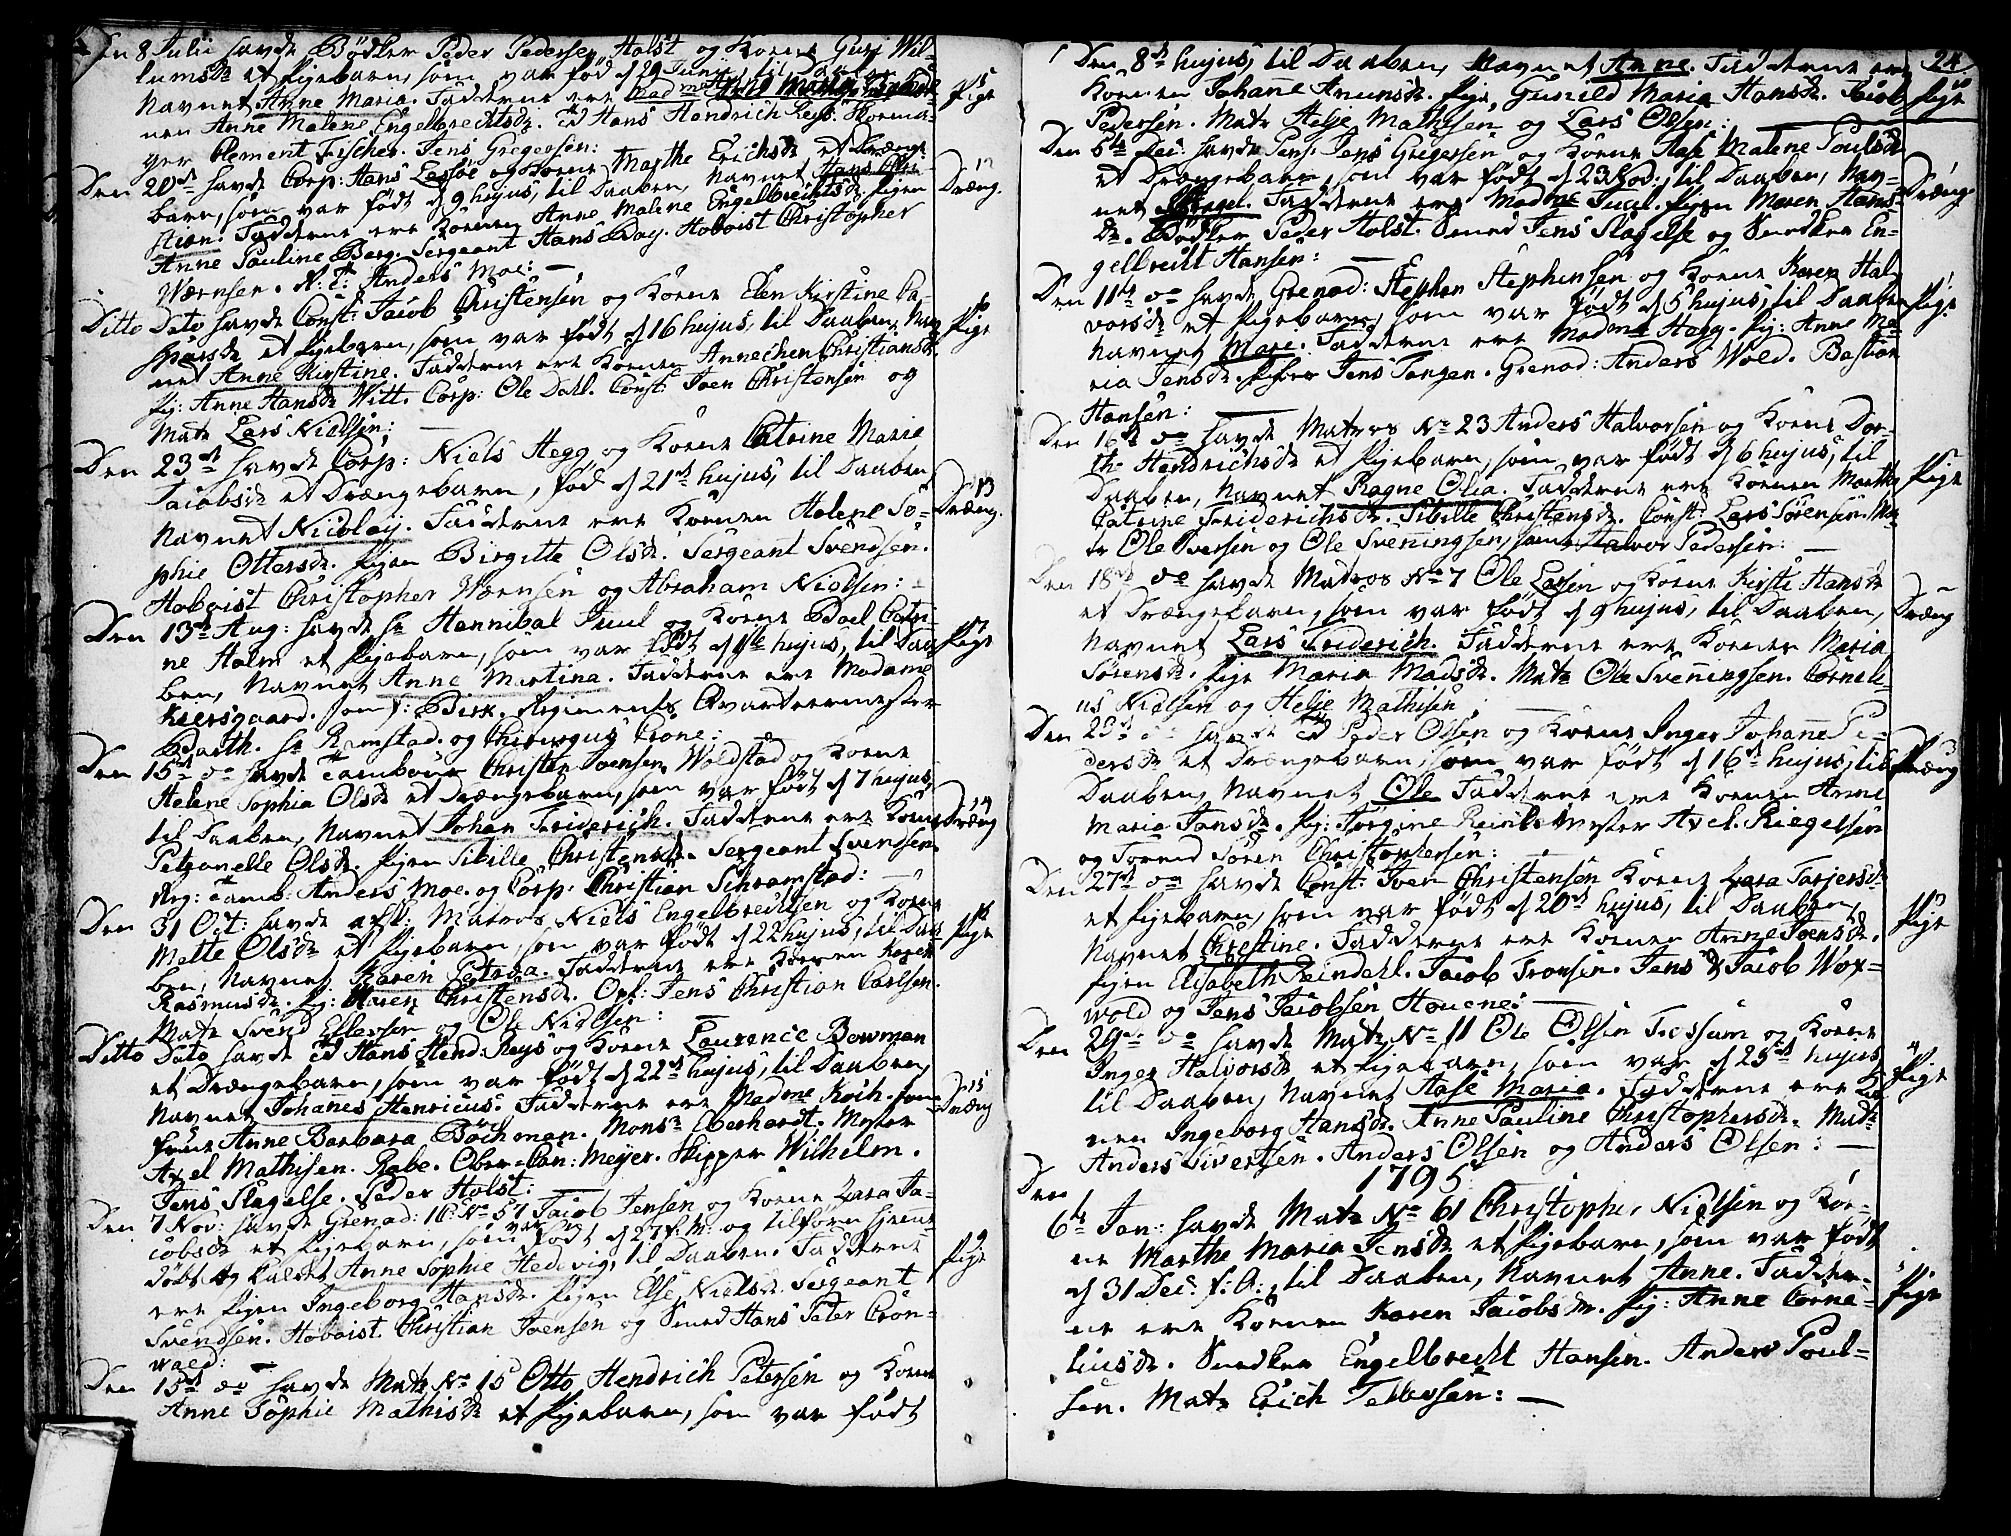 Den 8 Julii havde Bödker Peder Pedersen Holst og Konen Guri Wil-
lumsdr et Pigebarn, som var fød d 29 Junii, til Daaben
Navnet Anne Maria. Fadderne ere Madme
nen Anne Malene Engelbrechtsdr. Hans Hendrich Reys. Skoma-
ger Clement Fischer. Jens Gregersen:
Pige
Den 20de havde Corp: Hans Lassøe og Konen Marthe Erichsdr et Drænge
barn, som var født d 9 hujus, til Daaben, Navnet Hans Chri-
stian. Fadderne ere Konen Anne Malene Engelbrechtsdr. Pigen
Anne Pauline Berg. Sergeant Hans Bay. Hoboist Christopher
Wærnsen. R: T: Anders Moe: —
12
Dræng.
Ditto Dato havde Const: Jacob Christensen og Konen Elen Kirstine Ca-
spersdr et Pigebarn, som var født d 16 hujus, til Daaben, Nav-
net Anne Kirstine. Fadderne ere Konen Annechen Christiansdr.
Pig: Anne Hansdr Witt. Corp: Ole Dahl. Const: Iven Christensen og
Matr Lars Nielsen: —
16
Pige
Den 23de havde Corp: Niels Hegg og Konen Catrine Marie
Jacobsdr et Drængebarn, fød d 21de hujus, til Daaben
Navnet Nicolaij. Fadderne ere Konen Helene So-
phie Ottersdr. Pigen Birgitte Olsdr. Sergeant Svendsen.
Hoboist Christopher Wærnsen og Abraham Nielsen: —
13
Dræng.
Den 13de Aug: havde Hr Hannibal Juul og Konen Boel Catri-
ne Holm et Pigebarn, som var født d 1ste hujus, til Daa-
ben, Navnet Anne Martina. Fadderne ere Madame
Kiersgaard. Jomf: Birk. Regiments Qvarteermester
Barth. Hr Rimstad og Chirurgus Crone:
17
Pige
Den 15de do havde Tambour Christen Joensen Woldstad og Konen
Helene Sophia Olsdr et Drængebarn, som var født d 7 hujus,
til Daaben, Navnet Johan Friderich. Fadderne ere Konen
Petronelle Olsdr. Pigen Sibille Christensdr. Sergeant Svendsen.
Reg: Tamb: Anders Moe. og Corp: Christian Schramstad: —
14
Dræng
Den 31 Oct: havde afsk: Matros Niels Engelbrechtsen og Konen
Mette Olsdr et Pigebarn, som var født d 22 hujus, til Daa-
ben, Navnet Karen Petrea. Fadderne ere Konen Karen
Rasmusdr. Pig: Maren Christensdr. Jens Christian Carlsen.
Matr Svend Ellevsen og Ole Nielsen:
18
Pige
Ditto Dato havde Hans Hend: Reys og Konen Laurence Bowman
et Drængebarn, som var født d 22de hujus, til Daaben,
Navnet Johannes Henricus. Fadderne ere Madme Koch. Jom-
frue Anne Barbara Böchman. Monsr Eberhardt. Mester
Axel Mathisen. Rabe. Ober-Can: Meyer. Skipper Wilhelm.
Jens Slagelse. Peder Holst:
15
Dræng
Den 7 Nov: havde Grenad: No 57 Jacob Jensen og Konen Zara Ja-
cobsdr et Pigebarn, som var født d 27 f: M: og tilforn hjemme-
døbt og kaldet Anne Sophie Hedevig, til Daaben. Fadderne
ere Pigen Ingeborg Hansdr. Pigen Else Nielsdr. Sergeant
Svendsen. Hoboist Christian Joensen og Smed Hans Peter Cron-
wald: —
19
Pige
Den 15de do havde Matr No 15 Otto Hendrich Petersen og Konen
Anne Sophie Mathisdr et Pigebarn, som var født
24
Den 8de hujus, til Daaben, Navnet Anne. Fadderne ere
Konen Johanne Amunsdr. Pige Gunild Maria Hansdr. Jacob
Pedersen. Matr Helje Mathisen og Lars Olsen:
Pige
Den 5te Dec: havde Jens Gregersen og Konen Aase Malene Poulsdr
et Drængebarn, som var født d 23 Nod: til Daaben, Nav-
net . Fadderne ere Madme Juul. Pigen Maren Hans-
dr. Bødker Peder Holst. Smed Jens Slagelse og Snedker En-
gelbrecht Hansen: —
Dræng
Den 11te do havde Grenad: Stephen Stephensen og Konen Karen Hal-
vorsdr et Pigebarn, som var født d 5 hujus, til Daaben
Navnet Mari. Fadderne ere Madme Haag. Pig: Anne Ma-
ria Jensdr. Jens Tangen. Grenad: Anders Wold. Bastian
Hansen: —
Pige
Den 16de do havde Matros No 23 Anders Halvorsen og Konen Dor-
the Hendrichsdr et Pigebarn, som var født d 6 hujus, til
Daaben, Navnet Ragne Olia. Fadderne ere Konen Marthe
Catrine Friderichsdr. Sibille Christensdr. Const: Lars Sørensen. Ma-
tr Ole Iversen og Ole Svenningsen, samt Halvor Pedersen: —
Pige
Den 18de do havde Matros No 7 Ole Larsen og Konen Kirsti Hansdr
et Drængebarn, som var født d 9 hujus, til Daaben,
Navnet Lars Friderich. Fadderne ere Konen Maria
Sørensdr. Pige Maria Madsdr. Matr Ole Svenningsen. Corneli-
us Nielsen og Helje Mathisen
Dræng
Den 23de do havde Peder Olsen og Konen Inger Johanne Pe-
dersdr et Drængebarn, som var født d 16de hujus, til
Daaben, Navnet Ole. Fadderne ere Konen Anne
Maria Jansdr. Pig: Jørgine Mester Axel. Riegelsen
og Søren Christophersen: —
Dræng
Den 27de do havde Const: Iven Christensen Konen Zara Tarjersdr
et Pigebarn, som var født d 20de hujus, til Daaben,
Navnet Chrestine. Fadderne ere Konen Anne Joensdr.
Pigen Elisabeth Reindehl. Jacob Tronsen. Jens & Jacob Wox-
wold og Jens Jacobsen Houene: —
Pige
Den 29de do havde Matr No 11 Ole Olsen Fossum og Konen
Inger Halvorsdr et Pigebarn, som var d 25de hujus
til Daaben, Navnet Aase Maria. Fadderne ere Ko-
nen Ingeborg Hansdr. Anne Pauline Christophersdr. Matr
Anders Sivertsen. Anders Olsen og Anders Olsen: —
Pige
1795
Den
6te Jan: havde Matr No 61 Christopher Nielsen og Ko-
ne Marthe Maria Jensdr et Pigebarn, som var født
d 31 Dec: f: A:, til Daaben, Navnet Anne. Fadder-
ne ere Konen Karen Jacobsdr. Pig: Anne Corne-
liusdr. Snedker Engelbrecht Hansen. Anders Poul-
sen. Matr Erich Tellefsen: —
Pige